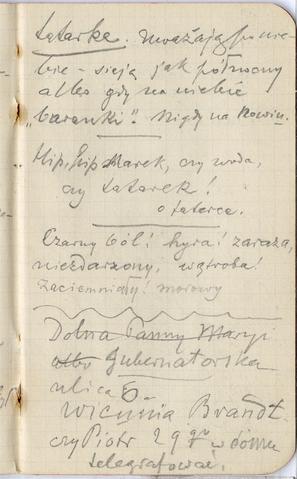 tatarkę. Uważają po nie-
bie - sieją jak północny
albo gdy na niebie
„baranki". Nigdy na Nowiu.
Hip, hip Marek, czy woda,
czy tatarek!
o tatarce.
Czarny ból! hyra! zaraza,
niezdarzony, wątroba!
Zaciemniały! morowy
Dolna Panny Maryi
albo Gubernatorska
ulica 6.
Wicunia Brandt
czy Piotr 29go w domu
telegrafować.